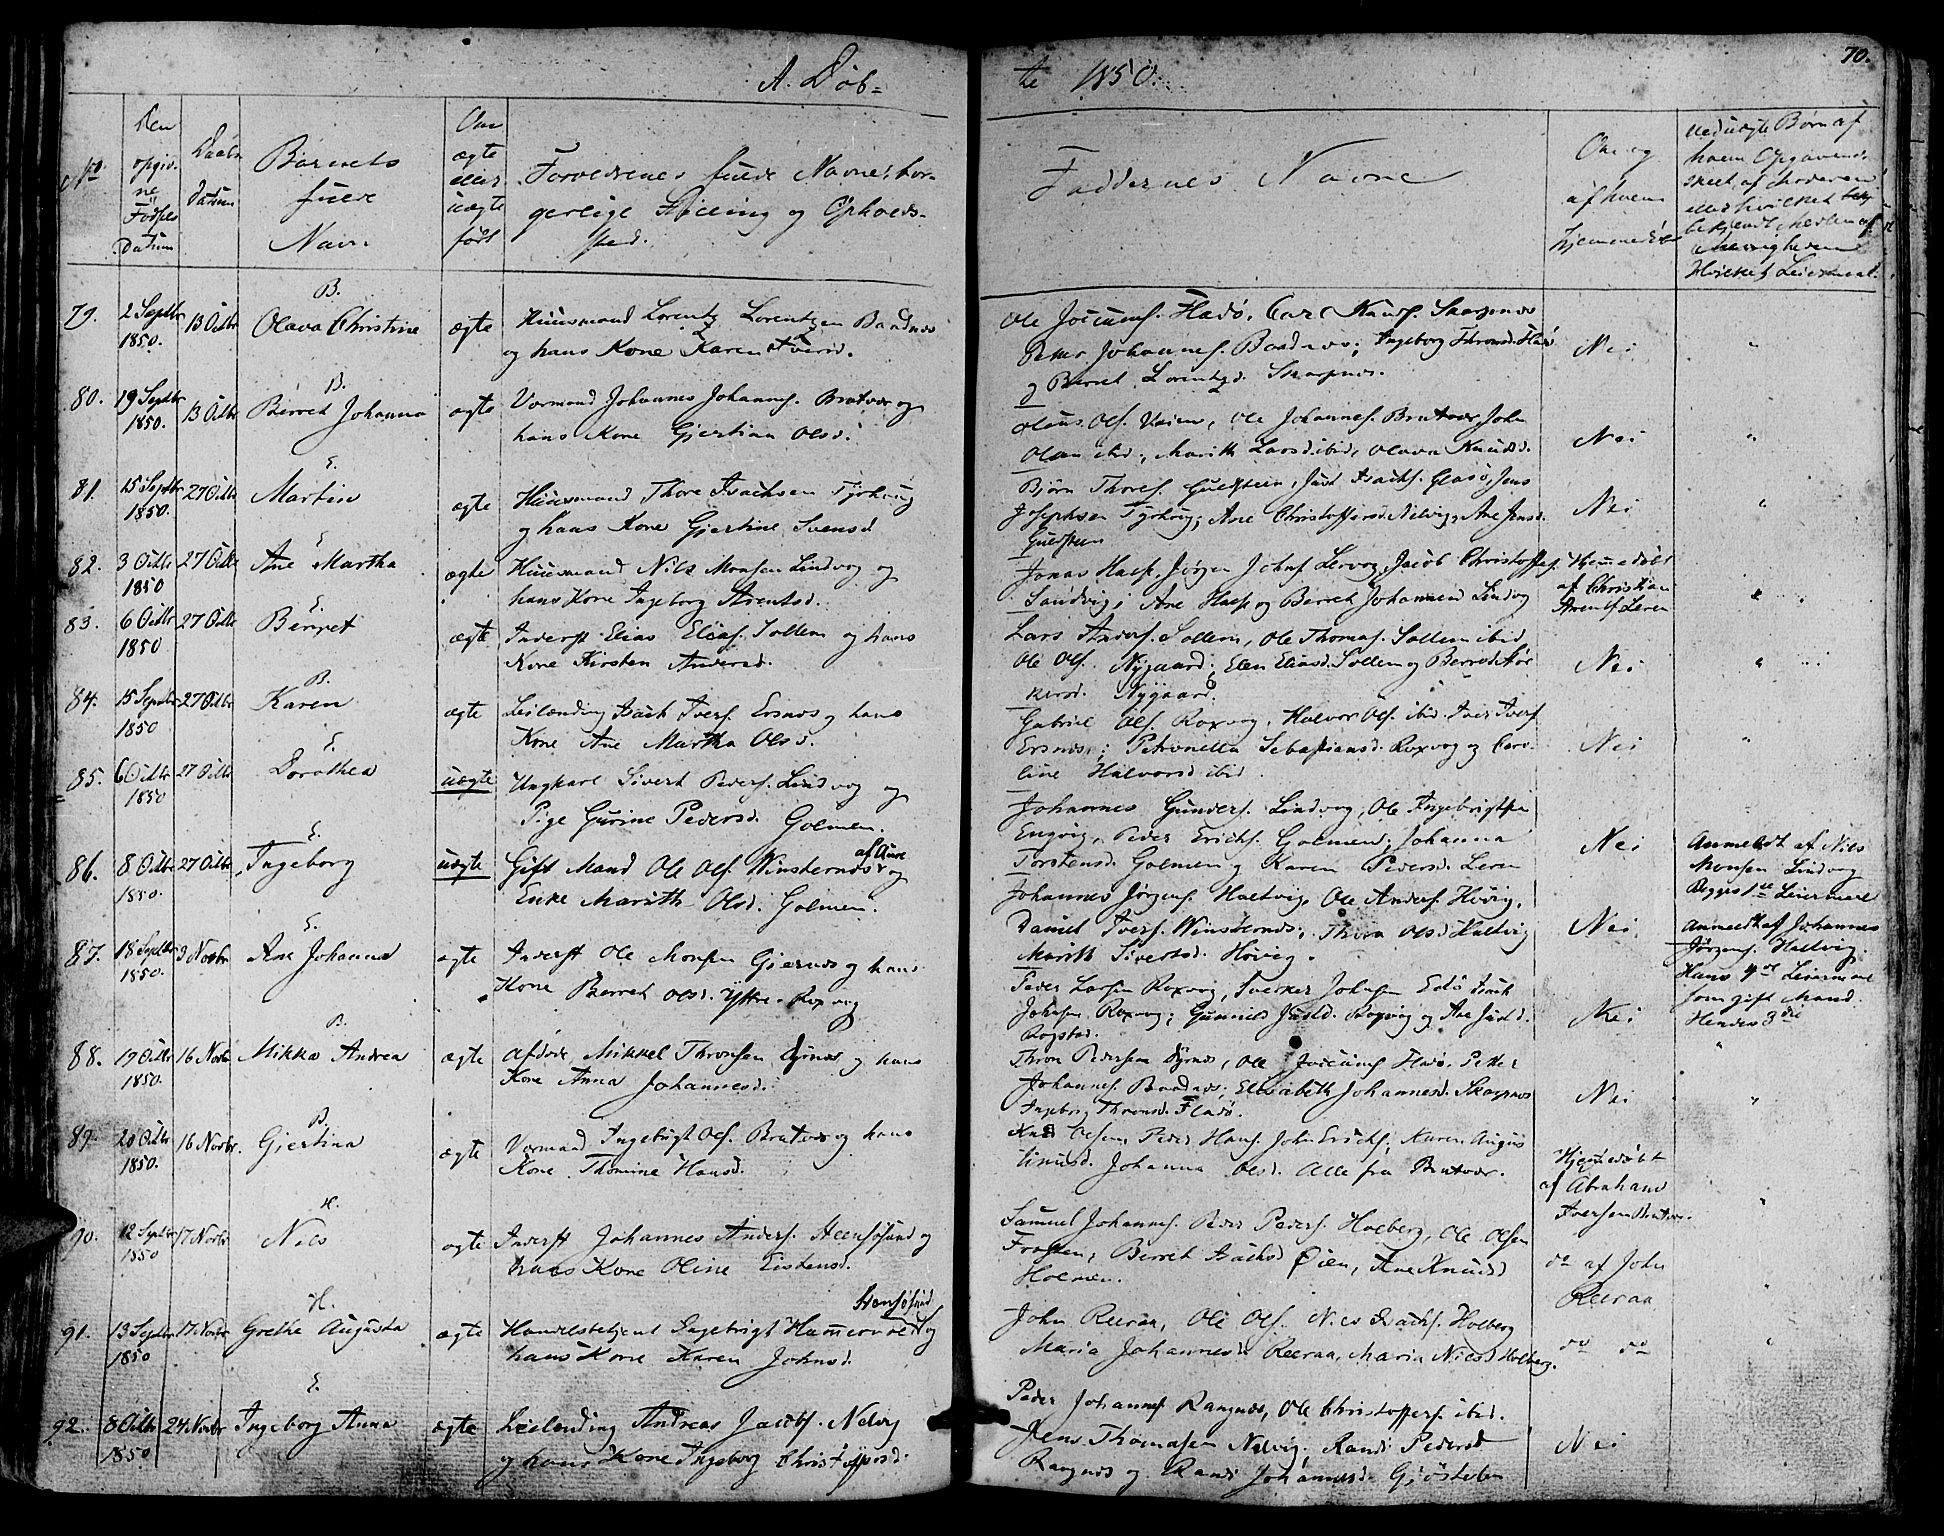 A. Døb=
te 1850.
70.
No
Den opgiv-
ne
Fødsels
Datum
Daabs
Datum
Barnets
fulde
Navn
Om
ægte
eller
uægte
født
Forældrenes fulde Navne, bor-
gerlige Stilling og Opholds-
sted.
Faddernes Navne
Om og
af hvem
hjemmedøbt
Ved uægte Børn af
hvem Opgavende
skeet, af Moderen
eller hvilket
79. 2 Septbr 1850. 13 Octbr B. Olava Christine ægte
Huusmand Lorentz Lorentzen Baadnæs
og hans Kone Karen Iversd.
Ole Jocums. Fladø, Carl Knuds. Skarpnæs
Peter Johannes. Baadnæs; Ingeborg Thronsd. Fladø
og Berret Lorentzd. Skarpnæs.
Nei "
80. 19 Septbr 1850. 13 Octbr B. Berret Johanna ægte
Vormand Johannes Johannes. Bratvær og
hans Kone Gjertian Olsd.
Olaus Ols. Veien, Ole Johannes. Bratvær, John
Olsen ibid; Marith Larsd. ibid, Olava Knudsd.
Nei "
81. 15 Septbr 1850. 27 Octbr E. Martin ægte
Huusmand Thore Isachsen Tyrhoug
og hans Kone Gjertine Svensd.
Bjørn Thores. Guldsteen, Just Isachs. Glasø, Jens
Josephsen Tyrhoug; Ane Christoffersd. Nelvig, Ane Jensd.
Guldsteen
Nei "
82. 3 Octbr 1850 27 Octbr E. Ane Martha ægte
Huusmand Nils Monsen Lindvog og
hans Kone Ingeborg Arentsd.
Jonas Hasp, Jørgen Johns. Lervog, Jacob Christoffs.
Sandvig; Ane Hasp og Berret Johannesd Lindvog
Hjemmedøbt
af Christian
Arents. Leren
"
83. 6 Octbr 1850 27 Octbr E. Berret ægte
Inderst Elias Elias. Sollem og hans
Kone Kirsten Andersd.
Lars Anders. Sollem, Ole Thomas. Sollem ibid
Ole Ols. Nygaard; Elen Eliasd. Sollem og Berret
Nygaard
Nei "
84. 15 Septbr 1850 27 Octbr B. Karen ægte
Leilænding Isach Ivers. Ersnæs og hans
Kone Ane Martha Olsd.
Gabriel Ols. Roxvog, Halvor Ols. ibid. Iver Ivers
Ersnæs; Petronella Sebastiansd. Roxvog og Caro-
line Halvorsd ibid.
Nei "
85. 6 Octbr 1850 27 Octbr E. Dorothea uægte
Ungkarl Sivert Peders. Lindvog og
Pige Gurine Pedersd. Golmen.
Johannes Gunders. Lindvog, Ole Ingebrigtsen
Engvig, Peder Erichs. Golmen; Johanna
Torstensd. Golmen og Karen Pedersd. Leren
Nei
Anmeldt af Nils
Monsen Lindvog
Begges 1ste Leiermaal
86. 8 Octbr 1850. 27 Octbr E. Ingeborg uægte
Gift Mand Ole Ols. Vinsternæs af Aure og
Enke Marith Olsd. Golmen.
Johannes Jørgens. Haltvig, Ole Anders. Høvig,
Daniel Ivers. Winsternæs, Thora Olsd Haltvig
Marith Sivertsd. Høvig.
Nei
Anmeldt af Johannes
Jørgens. Haltvig.
Hans 4de Leiermaal
som gift Mand.
Hendes 3die
87. 18 Septbr 1850. 3 Novbr E. Ane Johanna ægte
Inderst Ole Monsen Gjernæs og hans
Kone Berret Olsd. Yttre-Roxvog
Peder Larsen Roxvog, Sverker Johnsen Edø Isach
Johnsen Roxvog; Gunnild Justd. Roxvig og Ane Justd.
Rogstad.
Nei "
88. 19 Octbr 1850. 16 Novbr B. Mikka Andrea ægte
Afdøde Mikkel Thronsen Dyrnæs og hans
Kone Anna Johannesd.
Thron Pedersen Dyrnæs, Ole Jocums Fladø, Petter
Johannes. Baadnæs; Elisabeth Johannesd. Skarpnæs
Ingeborg Thronsd. Fladø.
Nei "
89. 20 Octbr 1850. 16 Novbr. B. Gjertina ægte
Vormand Ingebrigt Ols. Bratvær og hans
Kone Thomine Hansd.
Knud Olsen, Peder Hans. John Erichs; Karen Augus
tinusd. Johanna Olsd. Alle fra Bratvær.
Hjemmedøbt
af Abraham
Iversen Bratvær.
"
90. 12 Septbr 1850 17 Novbr H. Nils ægte
Inderst Johannes Anders. Heensøsund og
hans Kone Oline Eistensd.
Samuel Johannes. Peder Peders. Holberg, Ole Olsen
Frosten; Berret Isachsd Øien, Ane Knudsd
Holmen.
do af John
Reeraa
"
91. 13 Septbr 1850 17 Novbr H. Grethe Augusta ægte
Handelsbetjent Ingebrigt Hammervold Hensøsund og
hans Kone Karen Johnsd.
John Reeraa, Ole Ols. Nils Isachs. Holberg
Maria Johannesd. Reeraa, Maria Nilsd Holberg.
do do
"
92. 8 Octbr 1850 24 Novbr E. Ingeborg Anna ægte
Leilænding Andreas Jacobs. Nelvig
og hans Kone Ingeborg Christoffersd.
Peder Johannes Rangnæs, Ole Christoffers. ibid.
Jens Thomasen Nelvig. Randi Pedersd
Rangnæs og Randi Johannesd. Gjøstelen
Nei